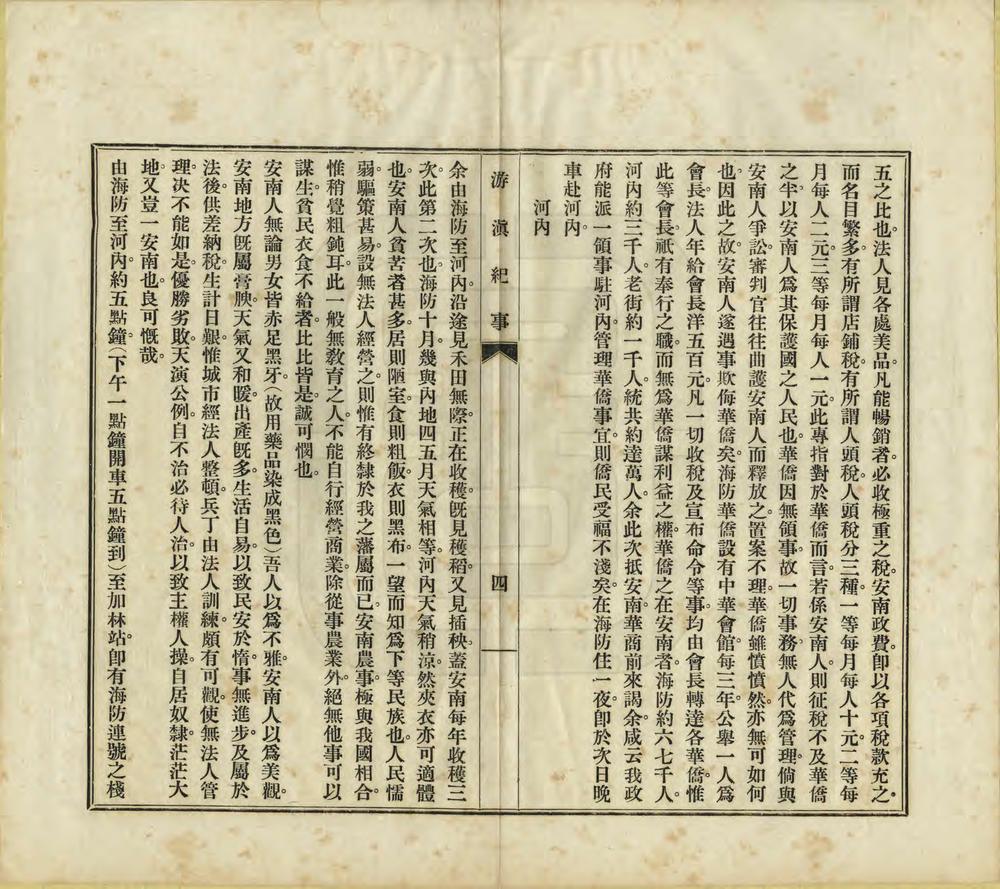 五之比也。法人見各處美品。凡能暢銷者。必收極重之稅。安南政費。卽以各項稅款充之。
而名目繁多。有所謂店鋪稅。有所謂人頭稅。人頭稅分三種。一等每月每人十元。二等每
月每人二元。三等每月每人一元。此專指對於華僑而言。若係安南人。則征稅不及華僑
之半。以安南人爲其保護國之人民也。華僑因無領事。故一切事務。無人代爲管理。倘與
安南人爭訟。審判官往往曲護安南人而釋放之。置案不理。華僑雖憤憤然。亦無可如何
也。因此之故。安南人遂遇事欺侮華僑矣。海防華僑設有中華會館。每三年公舉一人爲
會長。法人年給會長洋五百元。凡一切收稅及宣布命令等事。均由會長轉達各華僑。惟
此等會長。祇有奉行之職。而無爲華僑謀利益之權。華僑之在安南者。海防約六七千人。
河內約三千人。老街約一千人。統共約達萬人。余此次抵安南。華商前來謁余。咸云我政
府能派一領事駐河內。管理華僑事宜。則僑民受福不淺矣。在海防住一夜。卽於次日晚
車赴河內。
河內
游滇紀事
四
余由海防至河內。沿途見禾田無際。正在收穫。旣見穫稻。又見插秧。蓋安南每年收穫三
次。此第二次也。海防十月。幾與內地四五月天氣相等。河內天氣稍涼。然夾衣亦可適體
也。安南人貧苦者甚多。居則陋室。食則粗飯。衣則黑布。一望而知爲下等民族也。人民懦
弱。驅策甚易。設無法人經營之。則惟有終隸於我之藩屬而已。安南農事。極與我國相合。
惟稍覺粗鈍耳。此一般無敎育之人。不能自行經營商業。除從事農業外。絕無他事可以
謀生。貧民衣食不給者。比比皆是。誠可憫也。
安南人無論男女。皆赤足黑牙。(故用藥品染成黑色)吾人以爲不雅。安南人以爲美觀。
安南地方旣屬膏腴。天氣又和暖。出產旣多。生活自易。以致民安於惰。事無進步。及屬於
法後。供差納稅。生計日艱。惟城市經法人整頓。兵丁由法人訓練。頗有可觀。使無法人管
理。決不能如是。優勝劣敗。天演公例。自不治必待人治。以致主權人操。自居奴隸。茫茫大
地。又豈一安南也。良可慨哉。
由海防至河內。約五點鐘。(下午一點鐘開車五點鐘到)至加林站。卽有海防連號之棧